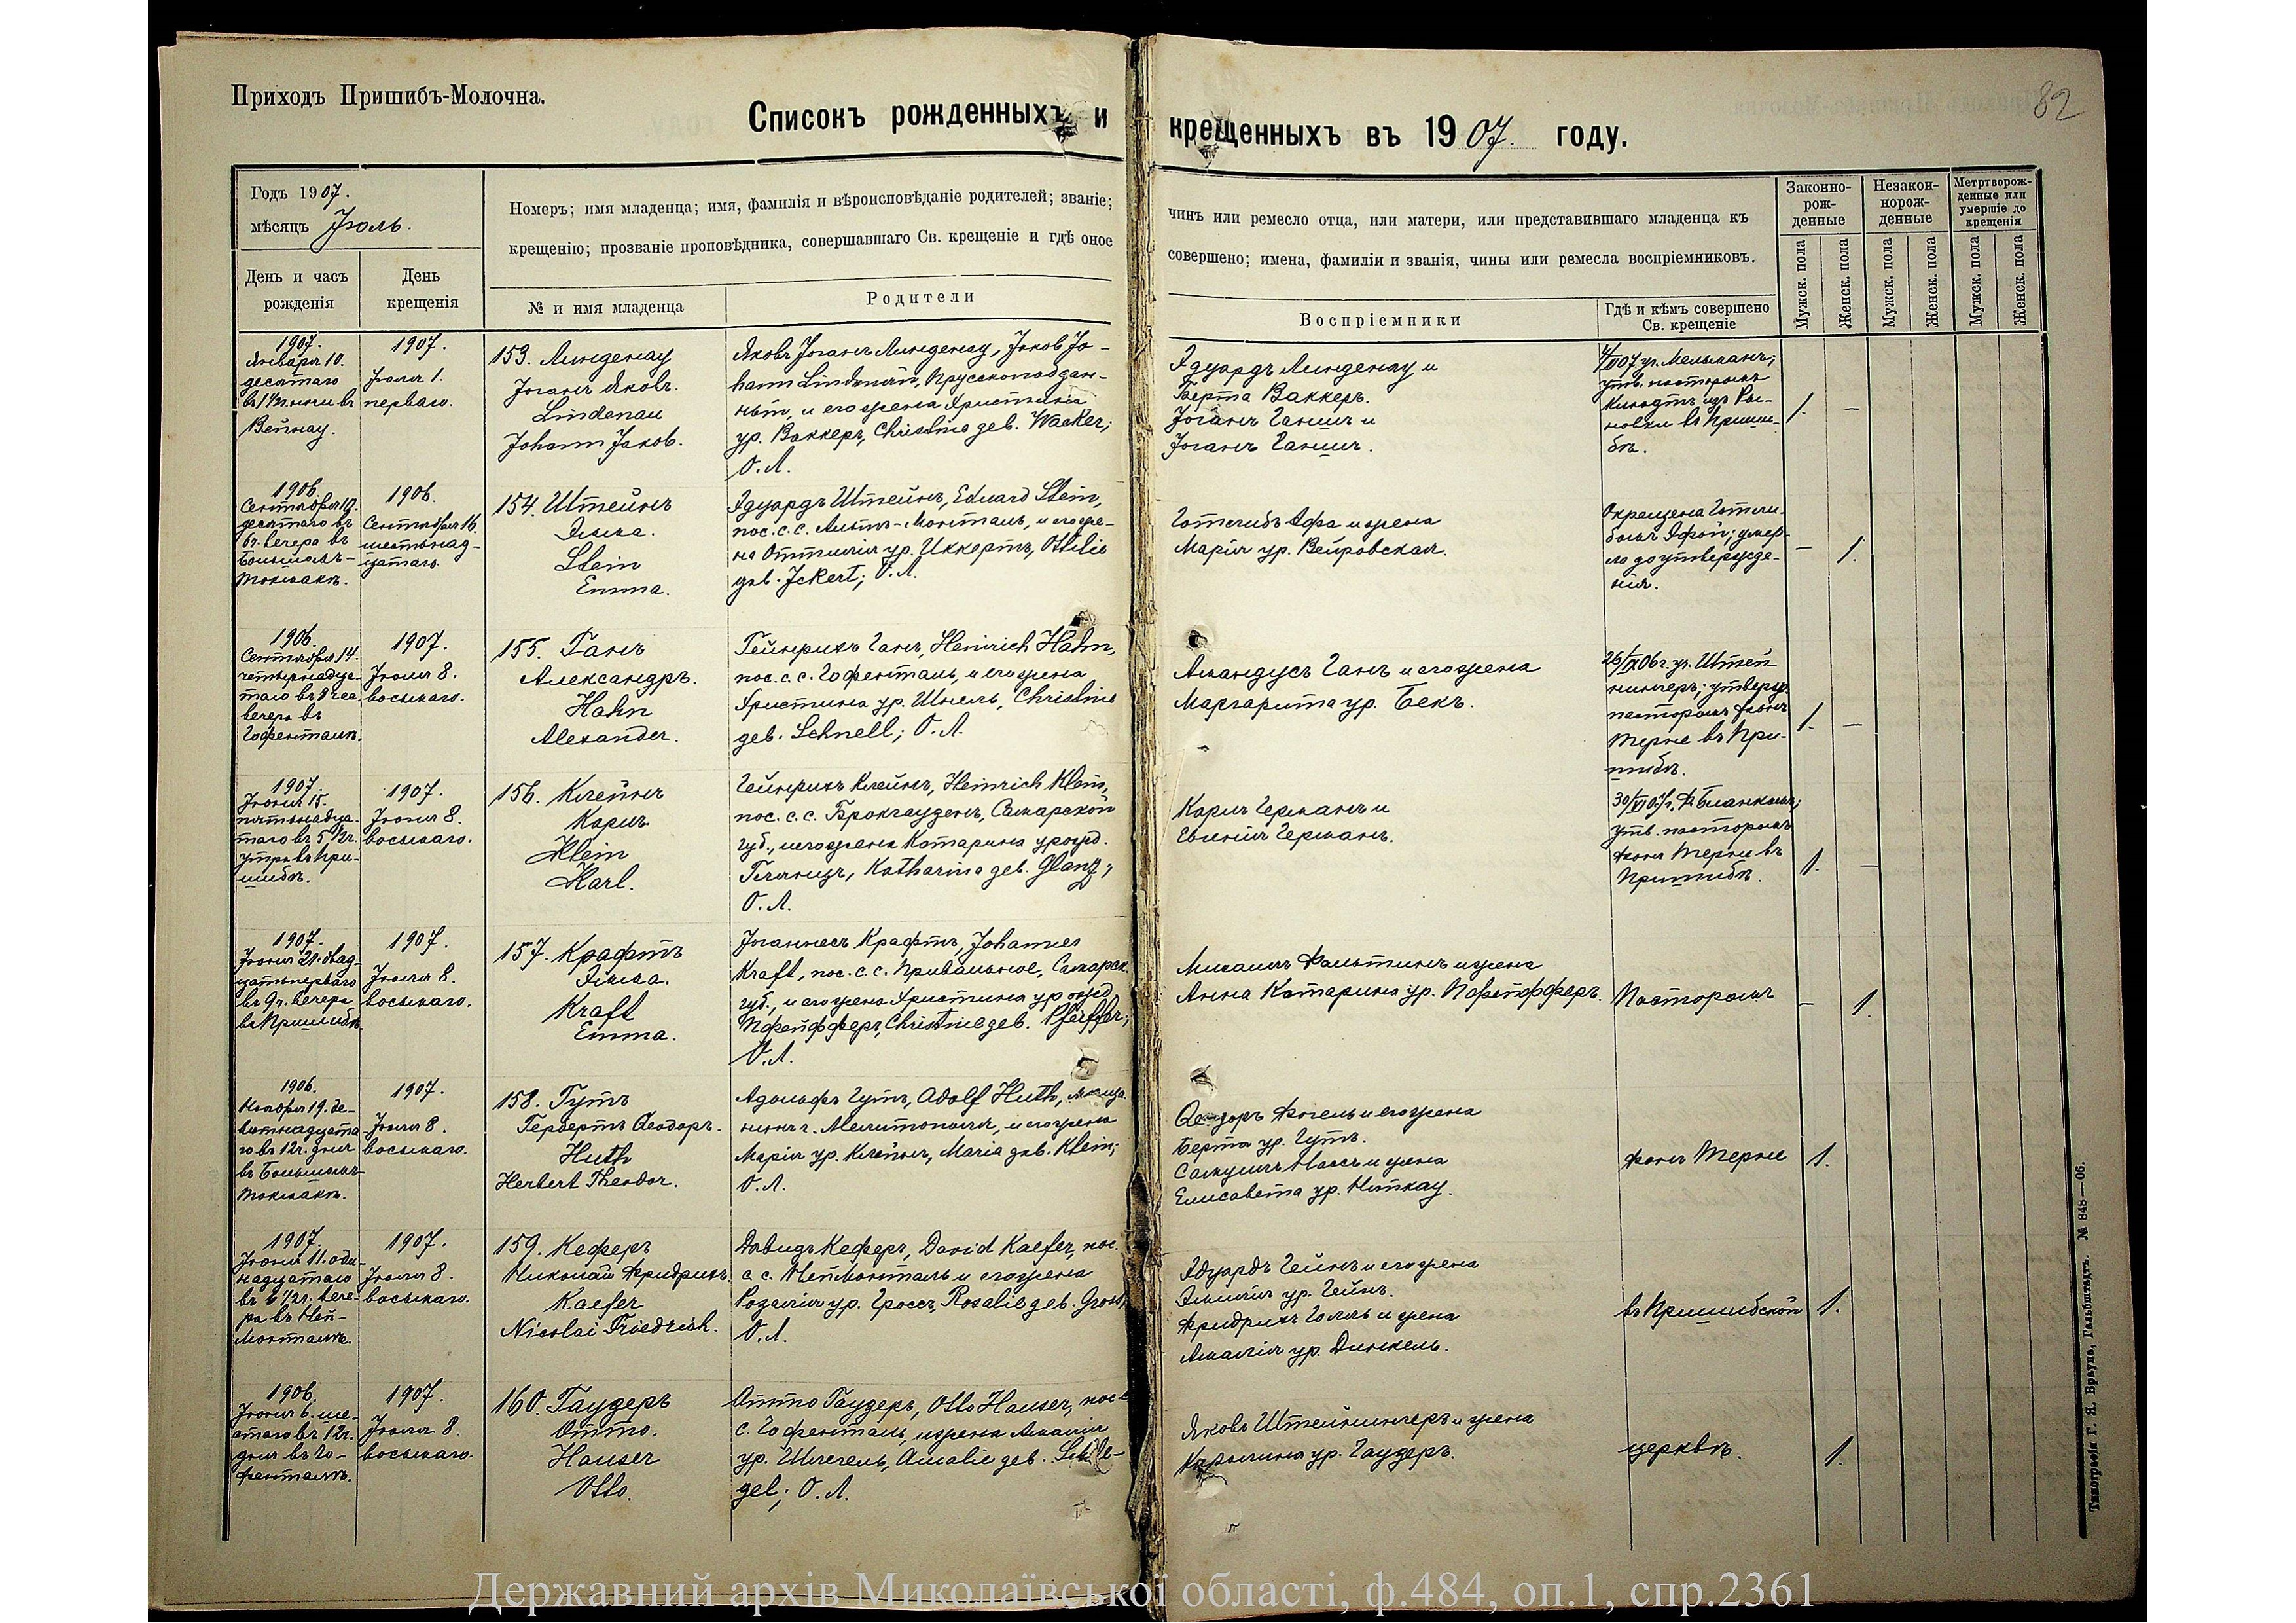 Приходъ Пришибъ-Молочна.
82
Списокъ рожденныхъ и крещенныхъ въ 1907. году.
Годъ 1907.
мѣсяцъ Іюль.
День и часъ рожденія
День крещенія
Номеръ; имя младенца; имя, фамилія и вѣроисповѣданіе родителей; званіе;
чинъ или ремесло отца, или матери, или представившаго младенца къ
крещенію; прозваніе проповѣдника, совершавшаго Св. крещеніе и гдѣ оное
совершено; имена, фамиліи и званія, чины или ремесла воспріемниковъ.
№ и имя младенца
Родители
Воспріемники
Гдѣ и кѣмъ совершено
Св. крещеніе
Законно-
рож-
денные
Незакон-
норож-
денные
Метртворож-
денные или
умершіе до
крещенія
Мужск. пола
Женск. пола
Мужск. пола
Женск. пола
Мужск. пола
Женск. пола
1907.
Января 10.
десятаго
в 1 1/2 ч. ночи въ
Вейнау.
1907.
Іюля 1.
перваго.
153. Линденау
Іоганъ Яковъ.
Lindenau
Johann Jakob.
Яковъ Іоганъ Линденау, Jakob Jo-
hann Lindenau, Прусскоподдан-
ный, и его жена Христина
ур. Ваккеръ, Christina geb. Wacker;
О. Л.
Эдуардъ Линденау и
Берта Ваккеръ.
Іоганъ Ганшъ и
Іоганъ Ганшъ.
07 уч. Мельманъ;
утв. пасторомъ
въ Приши-
бѣ.
1. –
1906.
Сентября 10.
десятаго въ
6 ч. вечера въ
Большомъ-
Токмакѣ.
1906.
Сентября 16.
шестьнад-
цатаго.
154. Штейнъ
Эмма.
Stein
Emma.
Эдуардъ Штейнъ, Eduard Stein,
пос. с. с. Альтъ-Монталь, и его же-
на Оттилія ур. Иккертъ, Ottilie
geb. Ickert; О. Л.
Готлибъ Афа и жена
Марія ур. Вейровская.
Окрещена Готли-
бомъ Афой; умер-
ло до утвержде-
нія.
– 1.
1906.
Сентября 14.
четырнадца-
таго въ 8 час.
вечера въ
Гофенталѣ.
1907.
Іюля 8.
восьмаго.
155. Ганъ
Александръ.
Hahn
Alexander.
Гейнрихъ Ганъ, Heinrich Hahn,
пос. с. с. Гофенталь, и его жена
Христина ур. Шнель, Christina
geb. Schnell; О. Л.
Амандусъ Ганъ и его жена
Маргарита ур. Бекъ.
26/IX 06 г. уч. Штей-
нингеръ; утвержд.
пасторомъ фонъ
Терне въ При-
шибѣ.
1. –
1907.
Іюня 15.
пятьнадца-
таго въ 5 1/2 ч.
утра въ При-
шибѣ.
1907.
Іюля 8.
восьмаго.
156. Клейнъ
Карлъ
Klein
Karl.
Гейнрихъ Клейнъ, Heinrich Klein,
пос. с. с. Брокгаузенъ, Самарской
губ., и его жена Катарина урожд.
Глянцъ, Katharina geb. Glanz;
О. Л.
Карлъ Германъ и
Евгенія Германъ.
утв. пасторомъ
фонъ Терне въ
Пришибѣ.
1. –
1907.
Іюня 21. двад-
цатьперваго
въ 9 ч. вечера
въ Пришибѣ.
1907.
Іюля 8.
восьмаго.
157. Крафтъ
Эмма.
Kraft
Emma.
Іоганнесъ Крафтъ, Johannes
Kraft, пос. с. с. Привальное, Самарск.
губ., и его жена Христина урожд.
Пфейфферъ, Christine geb. Pfeiffer;
О. Л.
Михаилъ Фальтинъ и жена
Анна Катарина ур. Пфейфферъ.
Пасторомъ
– 1.
1906.
Ноября 19. де-
вятнадцата-
го въ 12 ч. дня
въ Большомъ-
Токмакѣ.
1907.
Іюля 8.
восьмаго.
158. Гутъ
Гербертъ Ѳеодоръ.
Huth
Herbert Theodor.
Адольфъ Гутъ, Adolf Huth, мѣща-
нинъ г. Мелитополя, и его жена
Марія ур. Клейнъ, Maria geb. Klein;
О. Л.
Ѳеодоръ Фогель и его жена
Берта ур. Гутъ.
Самуилъ Маасъ и жена
Елисавета ур. Маткау.
фонъ Терне
1.
1907.
Іюня 11. оди-
надцатаго
въ 6 1/2 ч. вече-
ра въ Ней-
Монталѣ.
1907.
Іюля 8.
восьмаго.
159. Кеферъ
Николай Фридрихъ.
Kaefer
Nicolai Friedrich.
Давидъ Кеферъ, David Kaefer, пос.
с. с. Ней Монталь и его жена
Розалія ур. Гроссъ, Rosalie geb. Gross;
О. Л.
Эдуардъ Гейнъ и его жена
Эмилія ур. Гейнъ.
Фридрихъ Голль и жена
Амалія ур. Динкель.
въ Пришибской
1.
1906.
Іюня 6. ше-
стаго въ 12 ч.
дня въ Го-
фенталѣ.
1907.
Іюля 8.
восьмаго.
160. Гаузеръ
Отто.
Hauser
Otto.
Отто Гаузеръ, Otto Hauser, пос. с.
с. Гофенталь, и жена Амалія
ур. Шлегель, Amalie geb. Schle-
gel; О. Л.
Яковъ Штейнингеръ и жена
Каролина ур. Гаузеръ.
церквѣ.
1.
Типографія Г. Я. Брауна, Гальбштадтъ. № 848—06.
Державний архів Миколаївської області, ф.484, оп.1, спр.2361